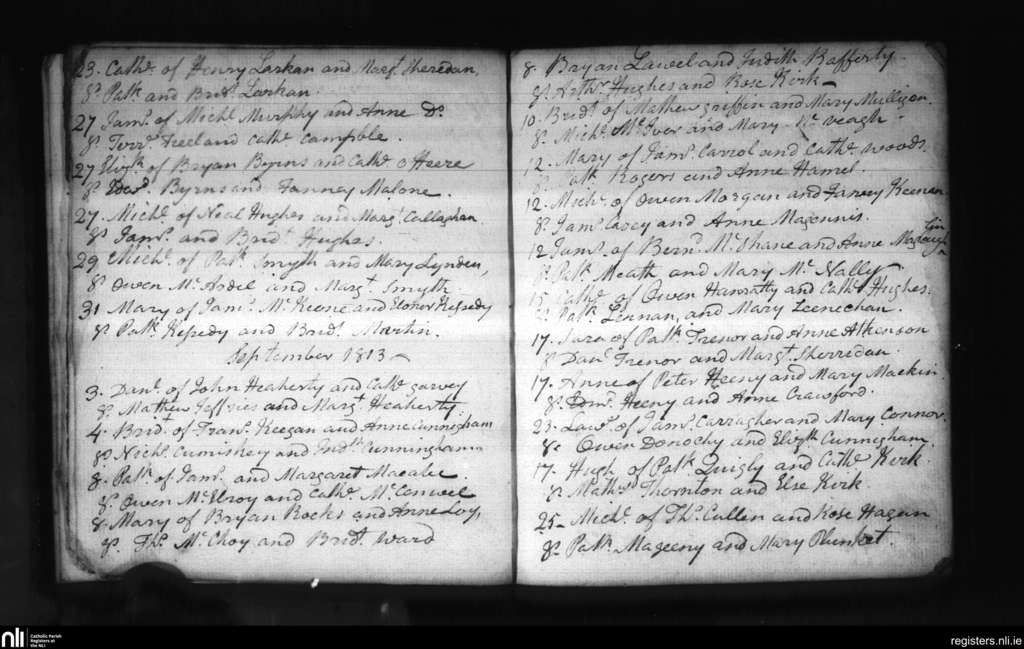 23. Cathe. of Henry Larkan and Margt. Sheredan,
Ss. Patk. and Bridt. Larkan.
27 Jams. of Michl. Murphy and Anne Do.
Ss. Terrs. and Cathe. Campble.
27 Elizth. of Bryan Byrns and Cathe. OHeere
Ss. Edwd. Byrns and Fanney Malone.
27. Michl. of Neal Hughes and Margt. Callaghan
Ss. Jams. and Bridt. Hughes.
29 Michl. of Patk. Smyth and Mary Lynden,
Ss. Owen Mc. Ardel and Margt. Smyth.
31 Mary of Jams. Mc. Keene and Elonor Kefsedy
Ss. Patk. Kefsedy and Bridt. Martin.
September 1813
3. Danl. of John Heaherty and Cathe. garvey
Ss. Mathew Jeffries and Margt. Heaherty.
4. Brid. of Frans. Keegan and Anne Cunnigham
Ss. Nichs. Cumiskey and Cunningham
8. Patk. of Jams. and Margaret Macabee
Ss. Owen Mc. Elroy and Cathe. Mc. Conwel
8. Mary of Bryan Rocks and Anne Loy,
Ss. Ths. Mc. Choy and Bridt. Ward
8. Bryan and Judith Rafferty
Ss. Arthr. Hughes and Rose Kirk
10. Bridt. of Mathew griffin and Mary Mulligan.
Ss. Michl. Mc. Iver and Mary Mc. veagh
12. Mary of Jams. Carrol and Cathe. woods
Ss. Patk. Rogers and Anne Hamel.
12. Michl. of Owen Morgan and Fanney Keenan
Ss. Jams. Casey and Anne Magennis.
12 Jams. of Bernd. Mc. Shane and Anne
Ss. Patk. Meath and Mary Mc. Nally
15. Cathe. of Owen Hanratty and Cathe. Hughes.
Ss. Patk. Lennan, and Mary Leenechan.
17. Sara of Patk. Trenor and Anne Atkenson
Ss. Danl. Trenor and Margt. Sherredan.
17. Anne of Peter Heeny and Mary Mackin.
Ss. Edmd. Heeny and Anne Crawford.
23. Lawe. of Jams. Carragher and Mary Connor.
Ss. Owen Donochy and Elizth. Cunnigham.
17. Hugh of Patk. Quigly and Cathe. Kirk.
Ss. Mathw. Thornton and Else Kirk.
25 Michl. of Ths. Cullen and Rose Hagan
Ss. Patk. Mageeny and Mary Plunket.
nli Catholic Parish
Registers at
the NLI
registers.nli.ie